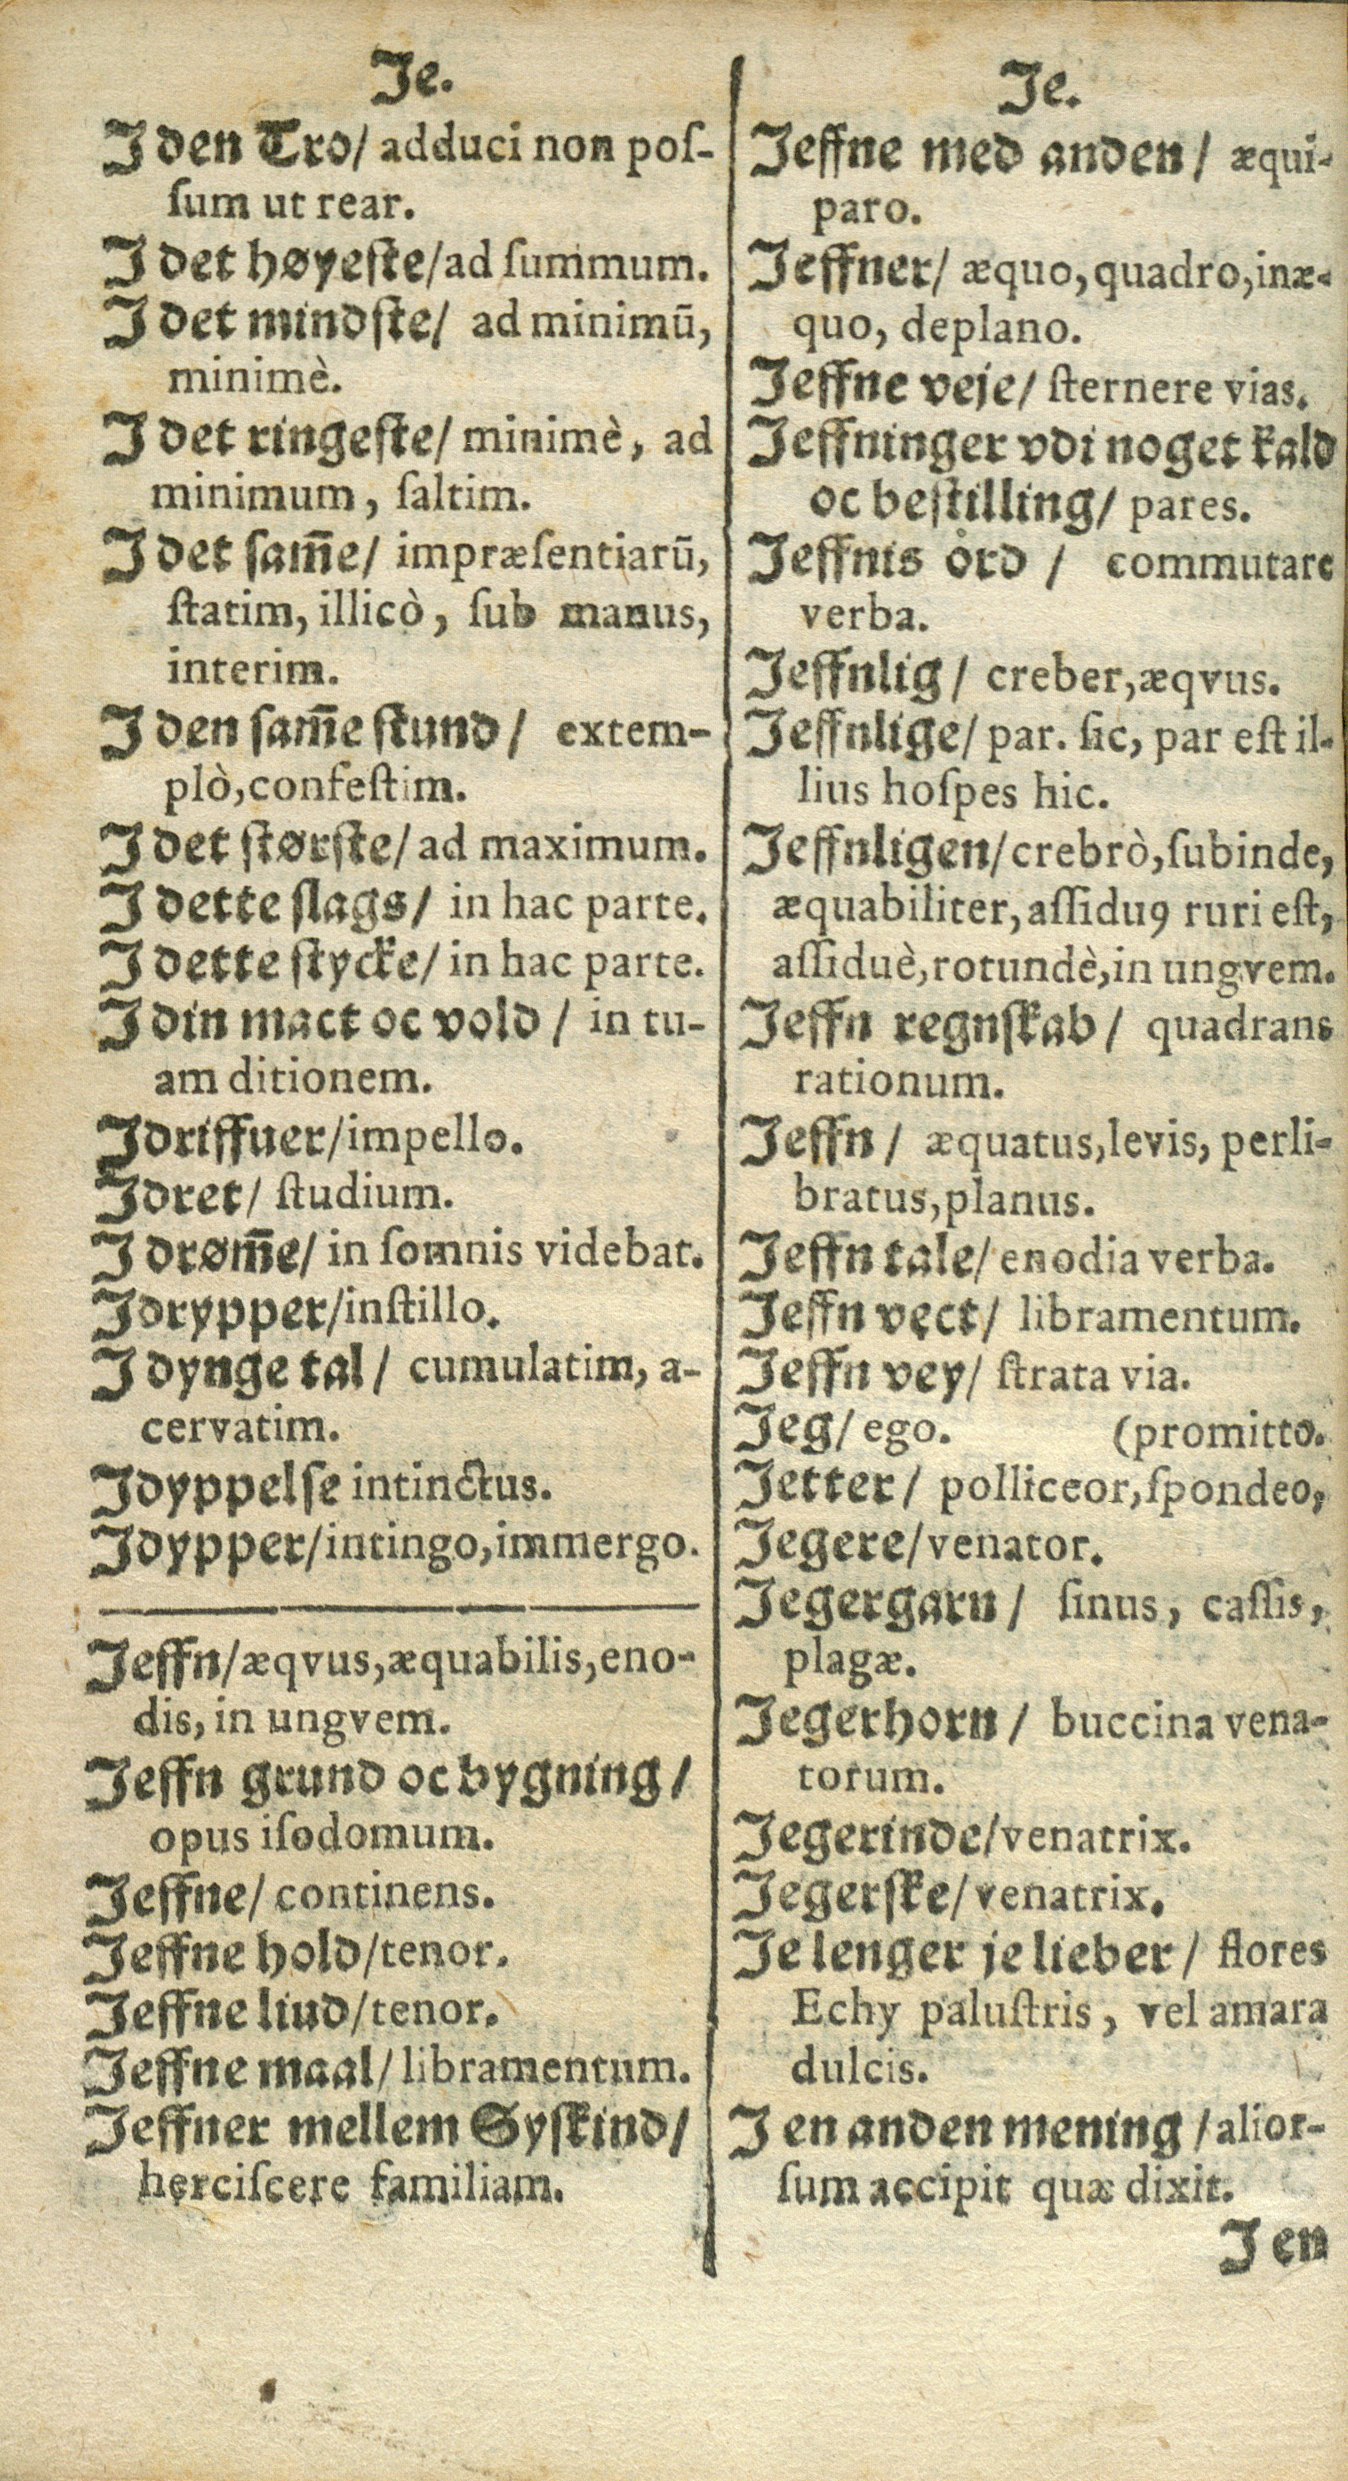 Je.
J den Tro/ adduci non poſ-
ſum ut rear.
J det høyeſte/ad ſummum.
J det mindſte/ ad minimū,
minimè.
J det ringeſte/ minimè, ad
minimum, ſaltim.
J det sam̃e/ impræſentiarū,
ſtatim, illicò, ſub manus,
interim.
J den sam̃e ſtund/ extem-
plò,confeſtim.
J det ſtørſte/ad maximum.
J dette ſlags/ in hac parte.
J dette ſtycke/in hac parte.
J din mact oc vold/ in tu-
am ditionem.
Jdriffuer/impello.
Jdret/ ſtudium.
J drøm̃e/ in ſomnis videbat.
Jdrypper/inſtillo.
J dynge tal/ cumulatim, a-
cervatim.
Jdyppelſe intinctus.
Jdypper/intingo,immergo.
Jeffn/æqvus,æquabilis,eno-
dis, in ungvem.
Jeffn grund oc bygning/
opus iſodomum.
Jeffne/ continens.
Jeffne hold/tenor.
Jeffne liud/tenor.
Jeffne maal/libramentum.
Jeffner mellem Syſkind/
herciſcere familiam.
Je.
Jeffne med anden/ æqui-
paro.
Jeffner/ æquo,quadro,inæ-
quo, deplano.
Jeffne veje/ ſternere vias.
Jeffninger vdi noget kald
oc beſtilling/ pares.
Jeffnis ord/ commutare
verba.
Jeffnlig/ creber,æqvus.
Jeffnlige/ par. ſic, par eſt il-
lius hoſpes hic.
Jeffnligen/crebrò,ſubinde,
æquabiliter,aſſiduꝰ ruri eſt,
aſſiduè,rotundè,in ungvem.
Jeffn regnſkab/ quadrans
rationum.
Jeffn/ æquatus,levis, perli-
bratus,planus.
Jeffn tale/ enodia verba.
Jeffn vect/ libramentum.
Jeffn vey/ ſtrata via.
Jeg/ ego. (promitto.
Jetter/ polliceor,ſpondeo,
Jegere/venator.
Jegergarn/ ſinus, caſſis,
plagæ.
Jegerhorn/ buccina vena-
torum.
Jegerinde/venatrix.
Jegerſke/venatrix.
Je lenger je lieber/ flores
Echy paluſtris, vel amara
dulcis.
J en anden mening/alior-
ſum accipit quæ dixit.
J en